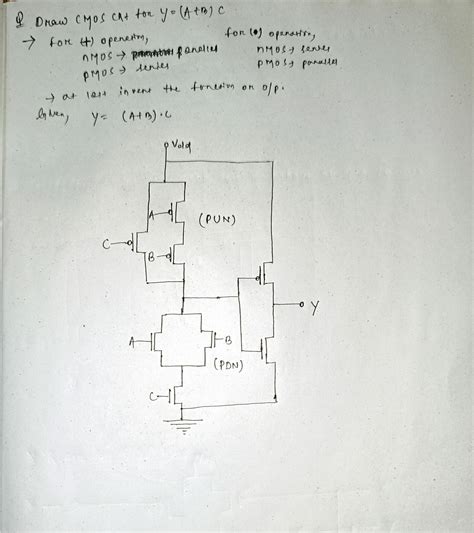 Q Draw CMOS CKt for Y=(A+B)C
→ for (+) operation, for (•) operation,
nMOS → parallel nMOS → series
pMOS → series pMOS → parallel
→ at last invert the function on o/p.
Given, Y= (A+B)·C
Vdd
A
(PUN)
C
B
Y
A
B
(PDN)
C